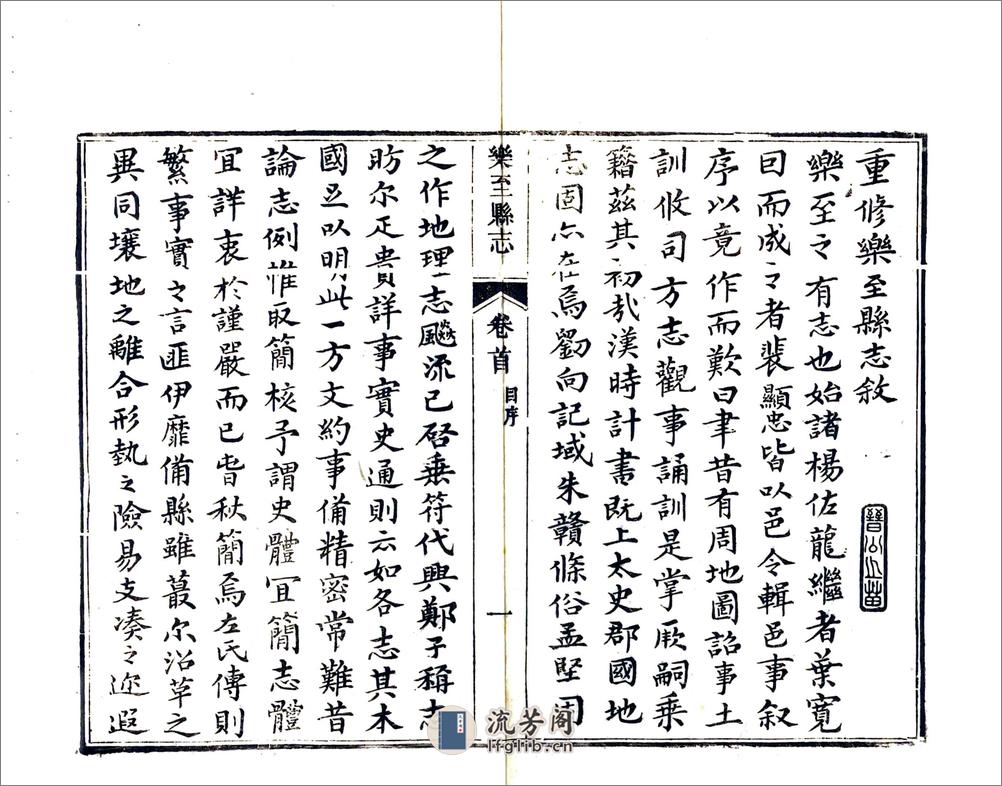 重修樂至縣志敘
樂至之有志也始諸楊佐龍繼者葉寬
曰而成之者裴顯忠皆以邑令輯邑事叙
序以竟作而歎曰聿昔有周地圖詔事土
訓攸司方志觀事誦訓是掌厥嗣乗
籍茲其初㢤漢時計書既上太史郡國地
志固亦在焉劉向記域朱贛條俗孟堅因
樂至縣志
卷首
目序
一
之作地理志飈流已啓垂符代興鄭子稱志
昉尔疋貴詳事實史通則云如各志其本
國𠯁以明此一方文約事備精密常難昔
論志例惟取簡核予謂史體冝簡志體
冝詳衷於謹嚴而已旾秋簡焉左氏傳則
繁事實之言匪伊靡備縣雖蕞尔沿革之
異同壤地之離合形埶之險易支湊之迩遐
流芳阁
lfglib.cn